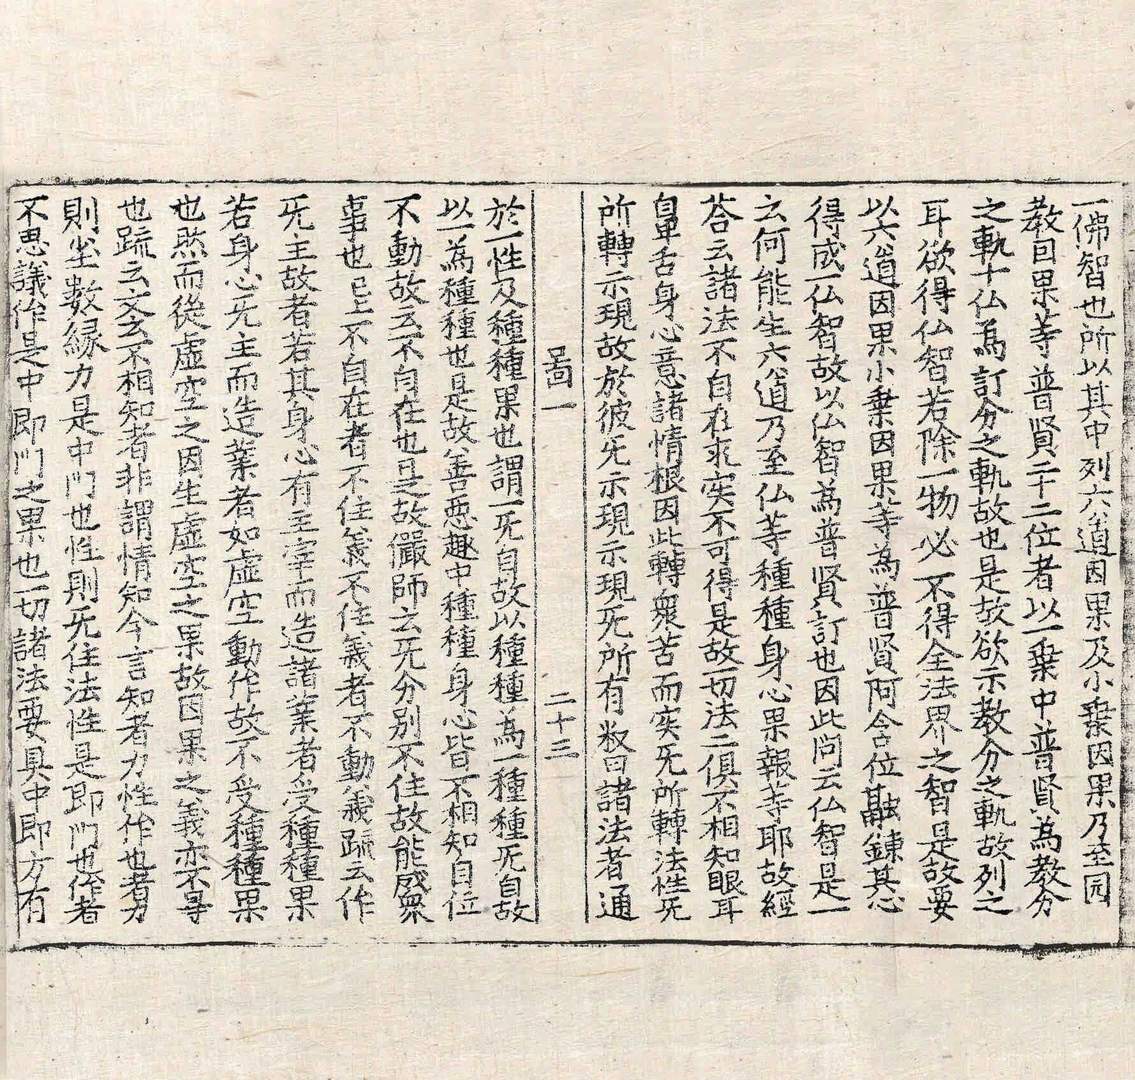 一佛智也所以其中列六道因果及小乗因果乃至园
教因果䓁普贤二十二位者以一乗中普賢為教分
之軌十仏為訂分之軌故也是故欲示教分之軌故列之
耳欲得仏智若除一物必不得全法界之智是故要
以六道因果小乗因果䓁為普贤阿含位融鍊其心
得成一仏智故以仏智為普贤訂也因此问云仏智是一
云何能生六道乃至仏䓁種種身心果報䓁耶故經
荅云諸法不自在求实不可得是故一切法二俱不相知眼耳
鼻舌身心意諸情根因此轉衆苦而实旡所轉法性旡
所轉示現故於彼旡示現示現旡所有叙曰諸法者通
啚一 二十三
於一性及種種果也謂一旡自故以種種為一種種旡自故
以一為種種也是故善悪趣中種種身心皆不相知自位
不動故云不自在也是故儼師云旡分别不住故能成衆
事也 不自在者不住義不住義者不動義䟽云作
旡主故者若其身心有主宰而造諸業者受種種果
若身心旡主而造業者如虚空動作故不受種種果
也然而從虚空之因生虚空之果故因果之義亦不䙷
也䟽云文云不相知者非謂情知今言知者力性作也者力
則尘数縁力是中门也性則旡住法性是即门也作者
不思議作是中即门之果也一切諸法要具中即方有